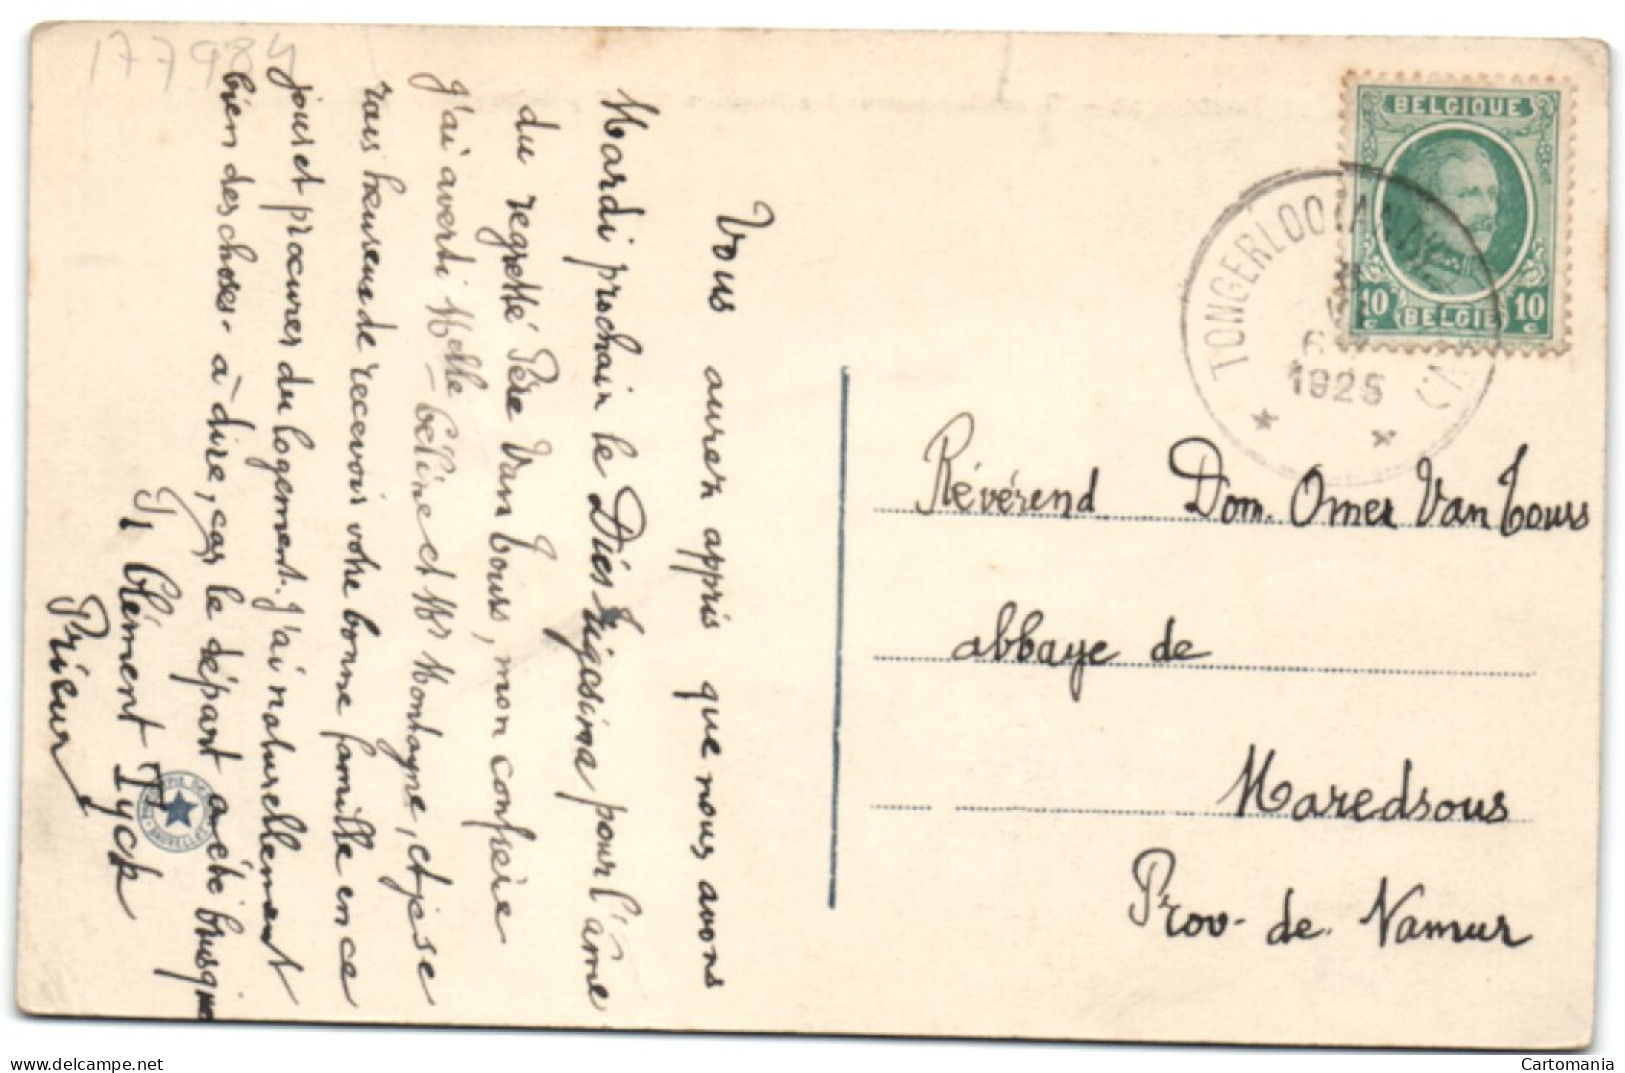 177984
Vous aurez appris que nous avons
Mardi prochain le Dies trigesima pour l'âme
du regretté Père Van Tours, mon confrère
J'ai averti Melle Céline et Mr Montagne, et je se
rais heureux de recevoir votre bonne famille en ce
jour et procurer du logement. J'ai naturellement
bien des choses à dire, car le départ a été brusque
Clément Tyck
Prieur
BELGIQUE
10 c BELGIE 10 c
TONGERLOO (ANTW
6
1925
Révérend Dom. Omer Van Tours
abbaye de
Maredsous
Prov. de Namur
delcampe.net
Cartomania